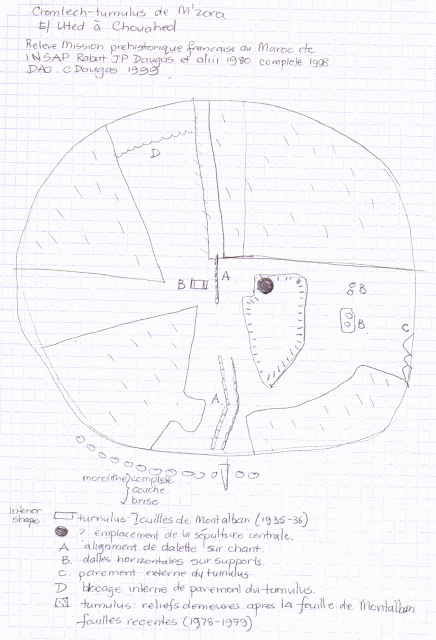 Cromlech-tumulus de M'zora
El Uted à Chouahed
Releve Mission prehistorique francaise au Maroc etc
INSAP Rabat JP Daugas et alii 1980 complete 1998
DAO. C Daugas 1999.
D
A
B
B
B
C
A
monolithe complete
couche
brise
Interior shape
tumulus-Fouilles de Montalban (1935-36)
? emplacement de la sépulture centrale.
A alignment de dalette sur chant.
B. dalles horizontales sur supports.
C. parement externe du tumulus
D blocage interne de parement du tumulus.
tumulus: reliefs demeures apres la fouille de Montalban
fouilles recentes (1978-1979)